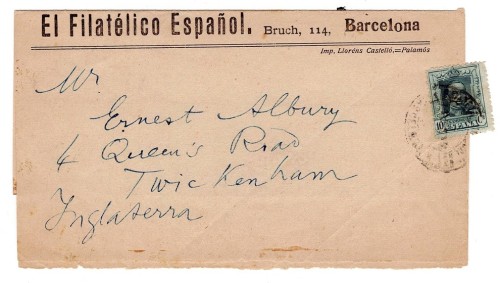 El Filatélico Español. Bruch, 114, Barcelona
Imp. Lloréns Castelló.=Palamós
Mr
Ernest Albury
4 Queen's Road
Twickenham
Inglaterra
10 Cs
ESPAÑA